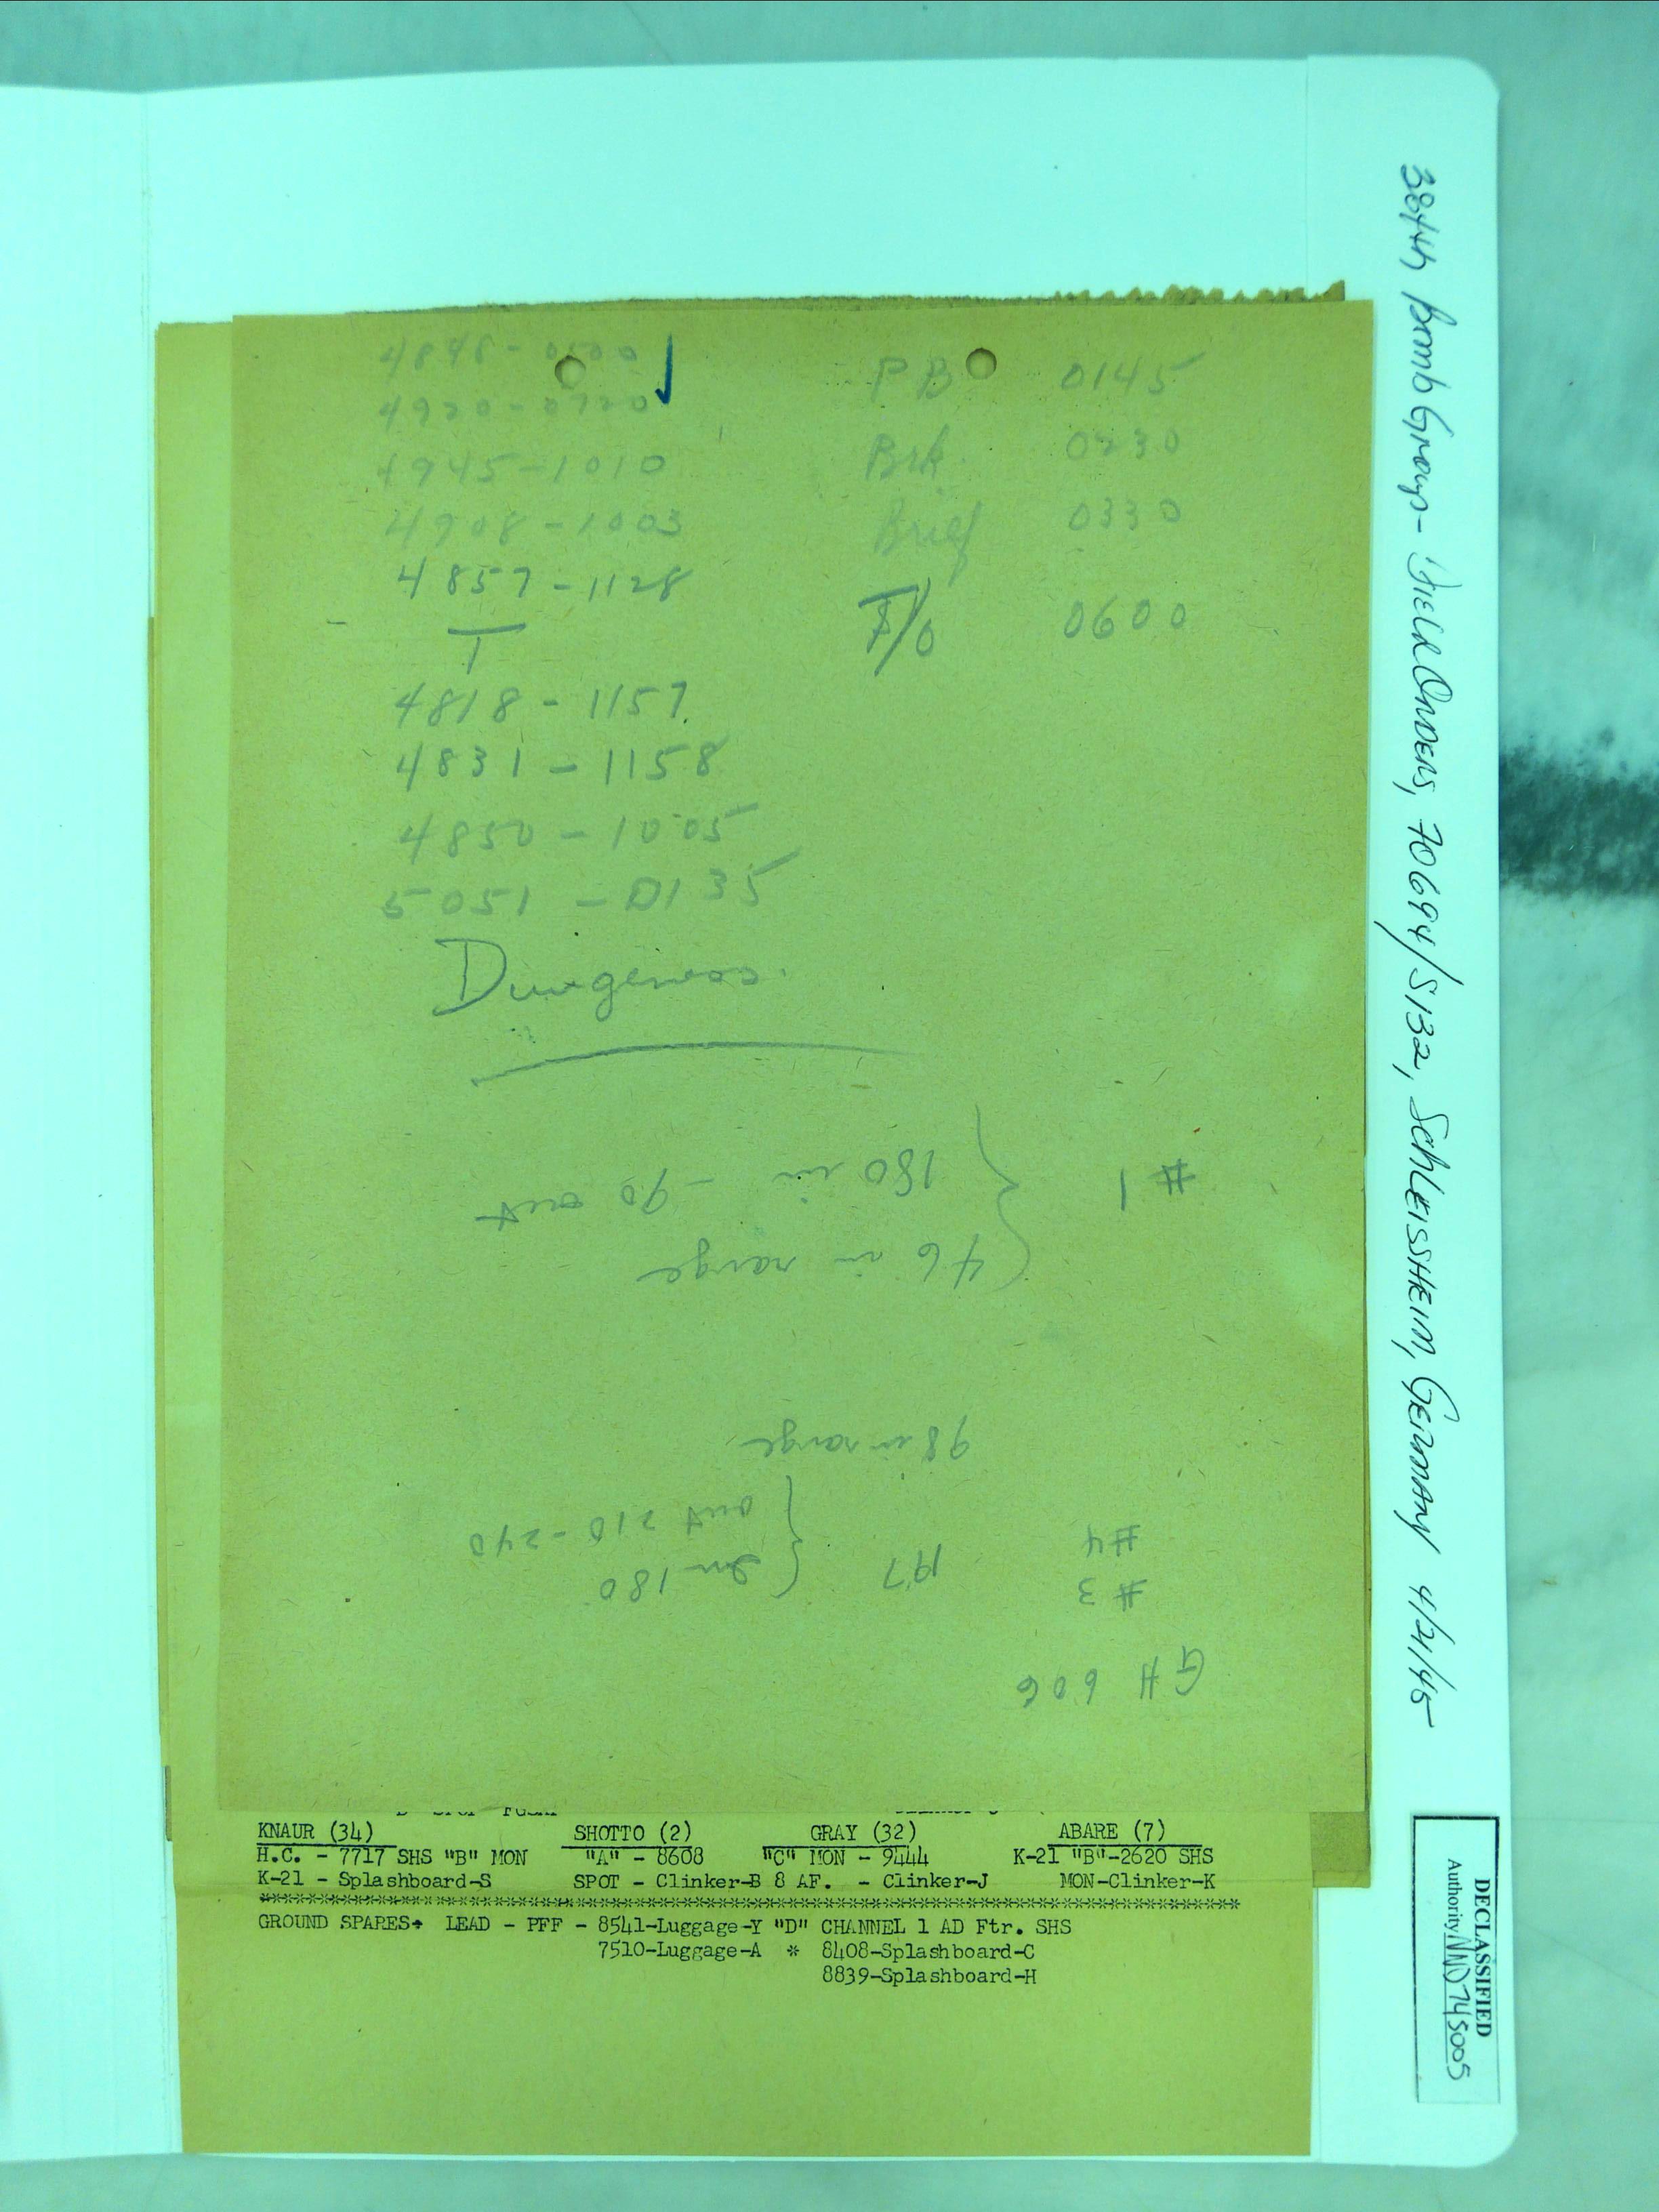 4848 - 0500
4920 - 0720
4945 - 1010
4908 - 1003
4857 - 1128
T
4818 - 1157
4831 - 1158
4850 - 1005
5051 - 0135
Dungeness.
PB 0145
Brk. 0230
Brief 0330
T/O 0600
GH 606
#3
#4
197
In - 180
out 210 - 240
98 in range
#1
46 in range
180 in - 90 out
KNAUR (34) SHOTTO (2) GRAY (32) ABARE (7)
H.C. - 7717 SHS "B" MON "A" - 8608 "C" MON - 9444 K-21 "B"-2620 SHS
K-21 - Splashboard-S SPOT - Clinker-B 8 AF. - Clinker-J MON-Clinker-K
GROUND SPARES+ LEAD - PFF - 8541-Luggage-Y "D" CHANNEL 1 AD Ftr. SHS
7510-Luggage-A * 8408-Splashboard-C
8839-Splashboard-H
384th Bomb Group - Field Orders, 70694/S132, Schleissheim, Germany 4/21/45
DECLASSIFIED
Authority NND 745005